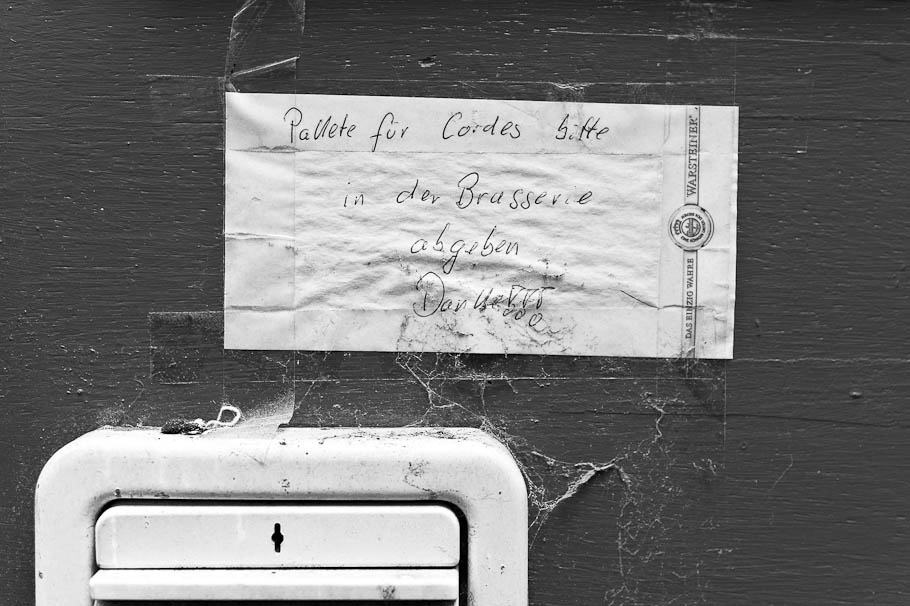 Pallete für Cordes bitte
in der Brasserie
abgeben
Danke!!!
WARSTEINER
DAS EINZIG WAHRE